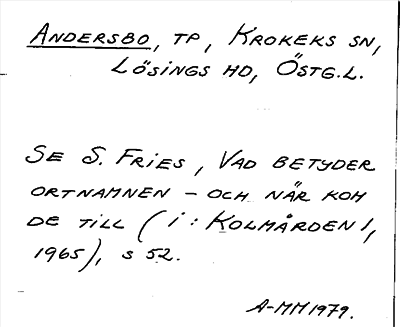 ANDERSBO, TP, KROKEKS SN,
LÖSINGS HD, ÖSTG.L.
SE S. FRIES, VAD BETYDER
ORTNAMNEN - OCH NÄR KOM
DE TILL (I: KOLMÅRDEN 1,
1965), S 52.
A-MM 1979.